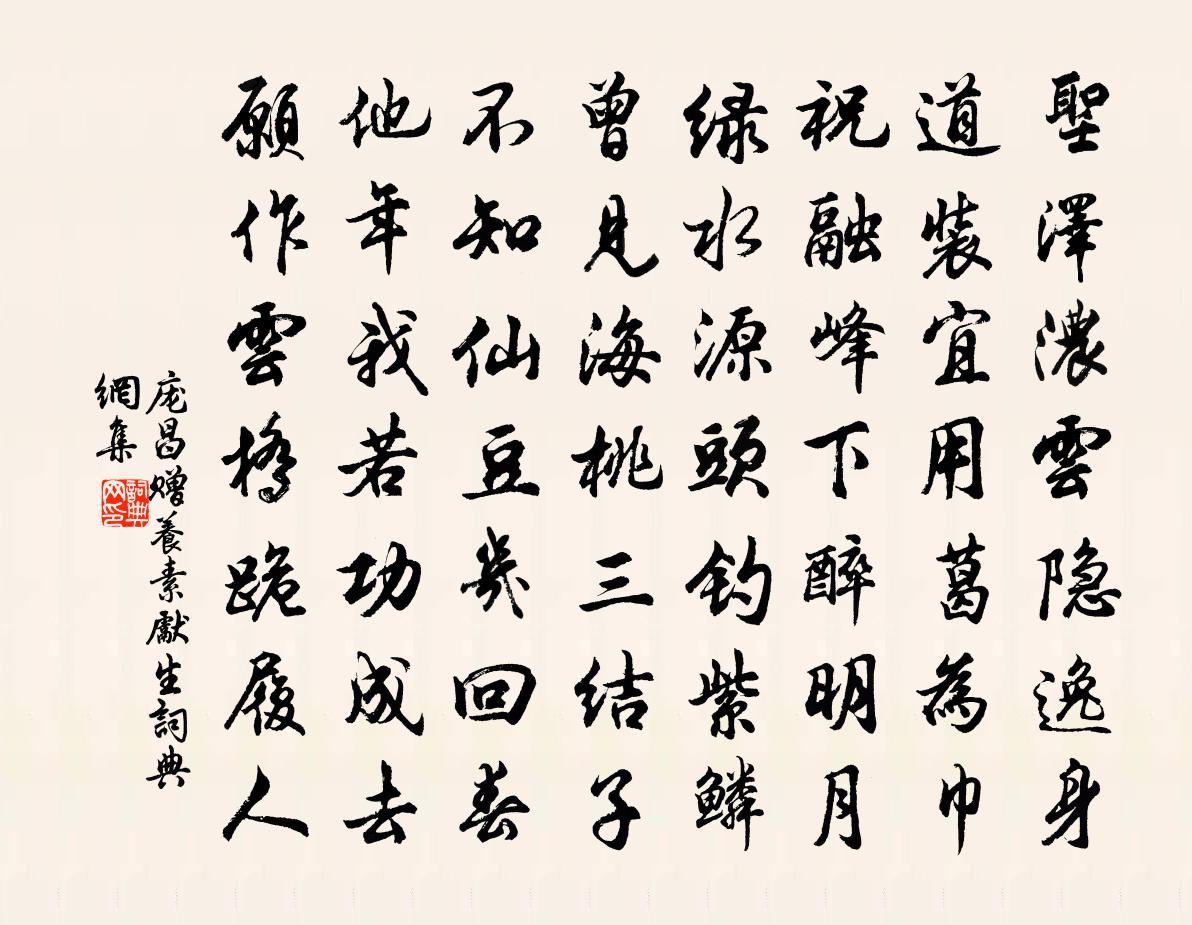 聖澤濃雲隐逸身
道裝宜用葛為巾
祝融峰下醉明月
緑水源頭釣紫鱗
曾見海桃三結子
不知仙豆幾回春
他年我若功成去
願作雲橋跪履人
庞昌赠養素獻生詞典
網集
詞典
网印